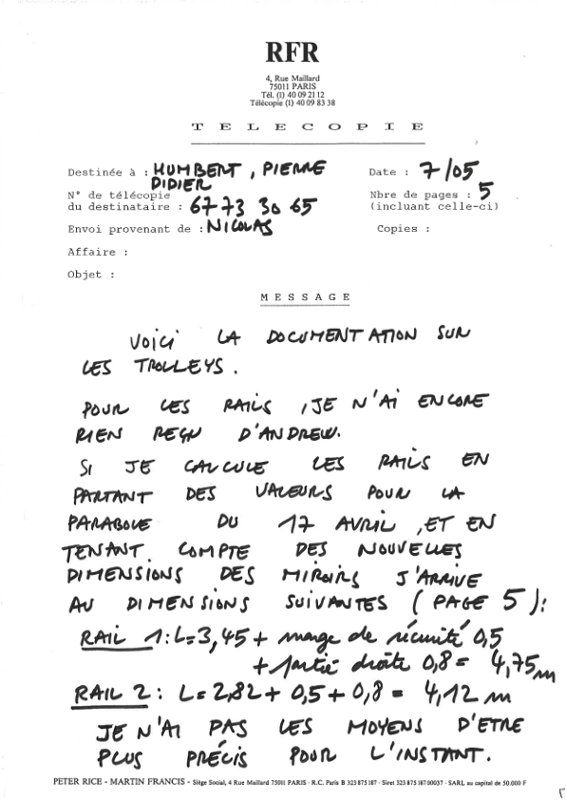 RFR
4, Rue Maillard
75011 PARIS
Tél. (1) 40 09 21 12
Télécopie (1) 40 09 83 38
TELECOPIE
Destinée à : HUMBERT, PIERRE
DIDIER
Date : 7/05
N° de télécopie
du destinataire : 67 73 30 65
Nbre de pages : 5
(incluant celle-ci)
Envoi provenant de : NICOLAS
Copies :
Affaire :
Objet :
MESSAGE
VOICI LA DOCUMENTATION SUR
LES TROLLEYS.
POUR LES RAILS, JE N'AI ENCORE
RIEN REÇU D'ANDREW.
SI JE CALCULE LES RAILS EN
PARTANT DES VALEURS POUR LA
PARABOLE DU 17 AVRIL, ET EN
TENANT COMPTE DES NOUVELLES
DIMENSIONS DES MIROIRS J'ARRIVE
AU DIMENSIONS SUIVANTES (PAGE 5):
RAIL 1: L=3,45 + marge de sécurité 0,5
+ partie droite 0,8 = 4,75m
RAIL 2: L=2,82 + 0,5 + 0,8 = 4,12 m
JE N'AI PAS LES MOYENS D'ETRE
PLUS PRÉCIS POUR L'INSTANT.
PETER RICE - MARTIN FRANCIS - Siège Social, 4 Rue Maillard 75011 PARIS - R.C. Paris B 323 875 187 - Siret 323 875 187 00037 - SARL au capital de 50.000 F